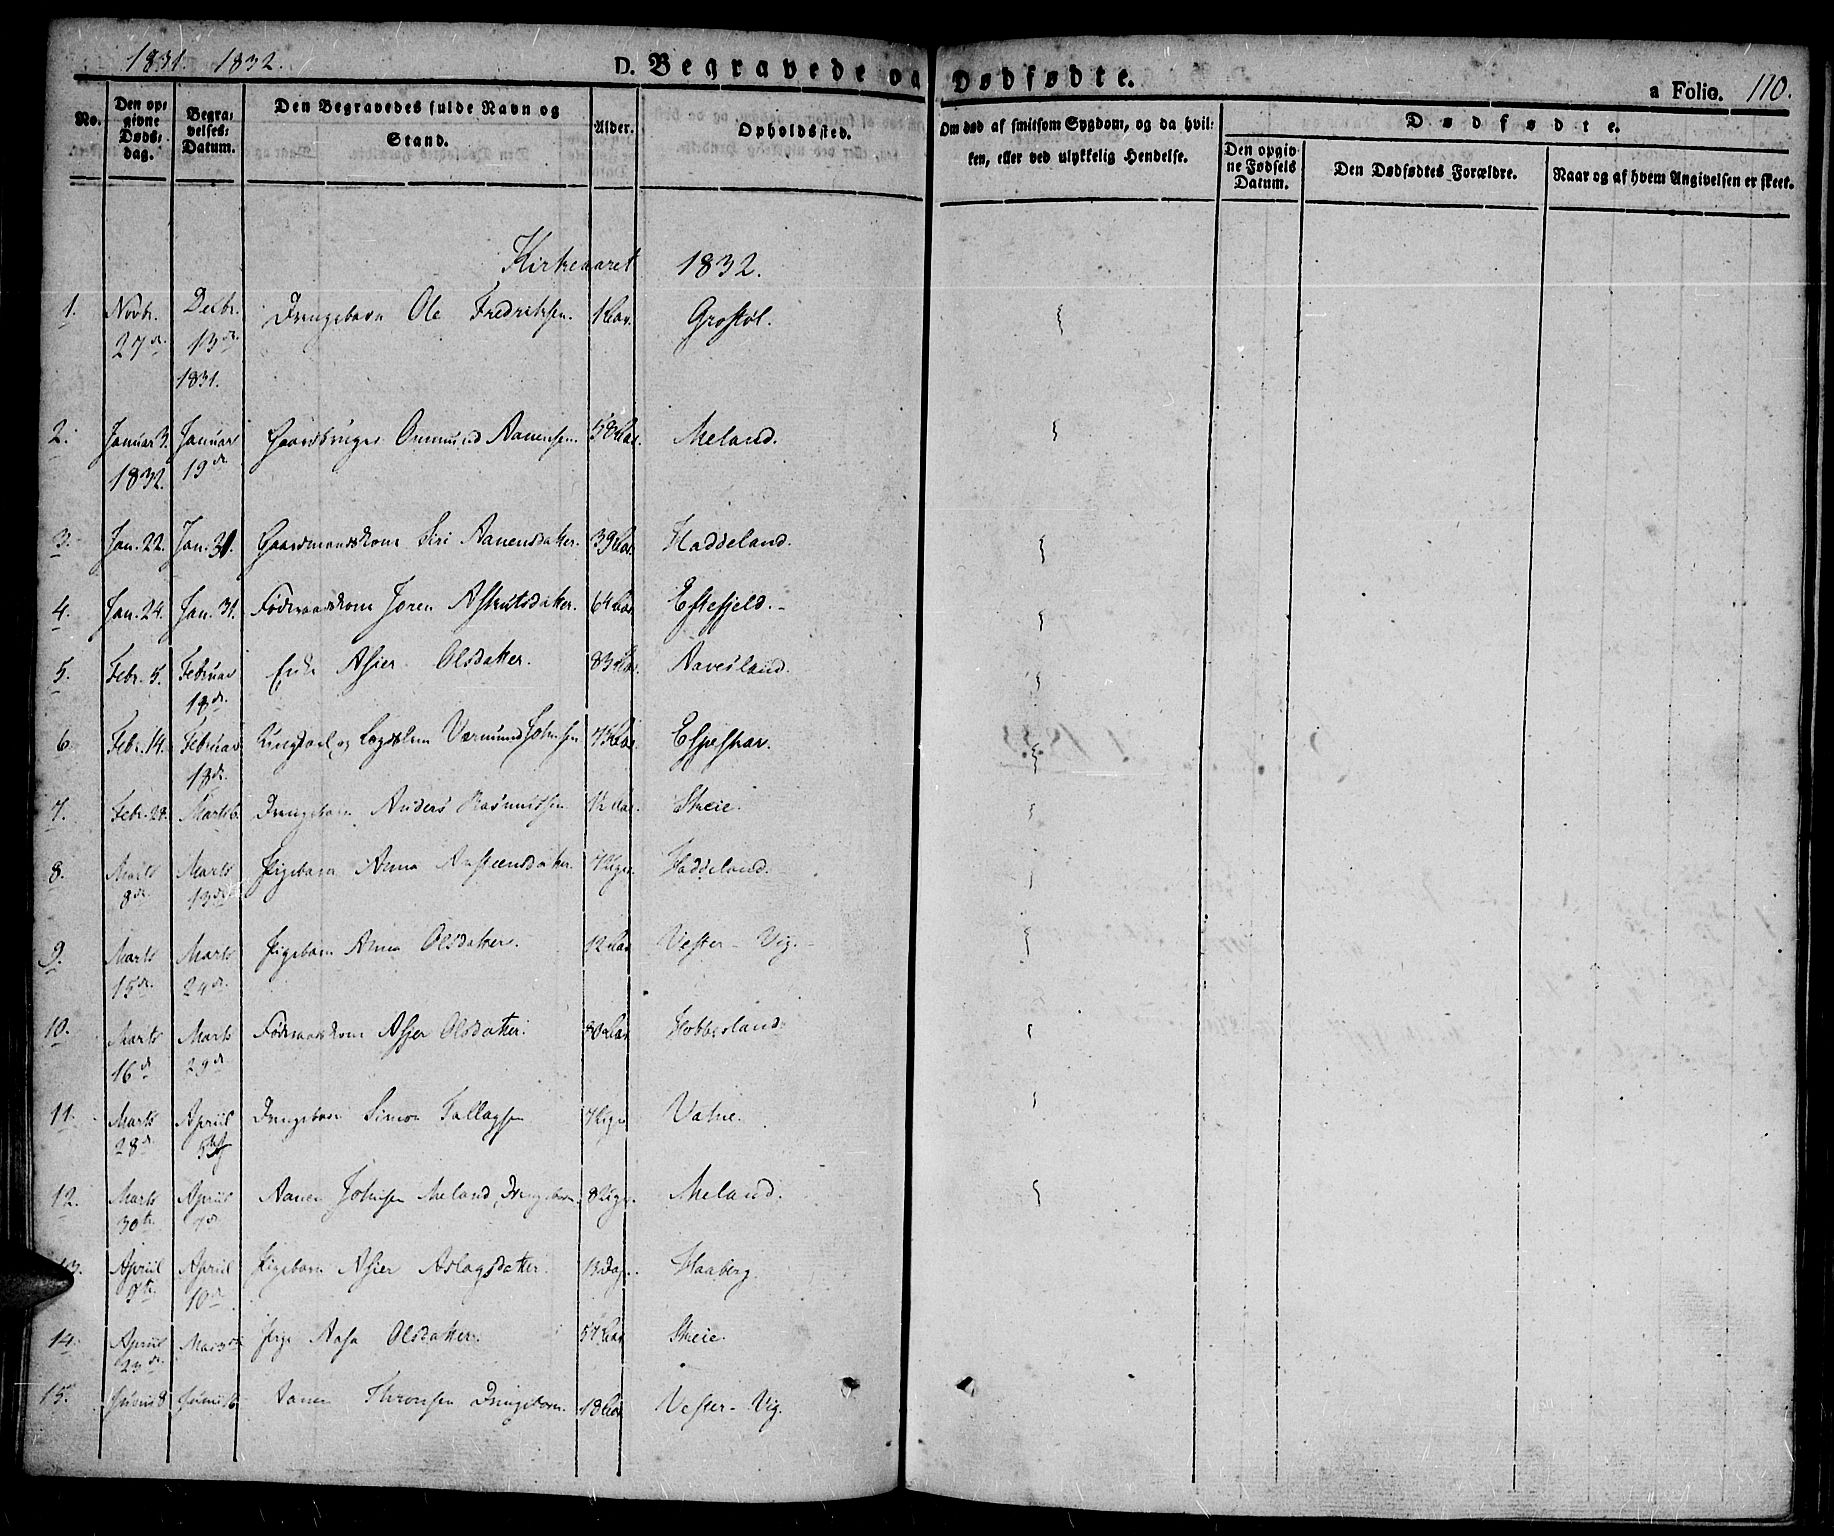 1831. 1832.
D. Begravede og Dødfødte.
a Folio. 110.
No.
Den opgivne Dødsdag.
Begravelses-Datum.
Den Begravedes fulde Navn og Stand.
Alder.
Opholdssted.
Om død af smitsom Sygdom, og da hvilken, eller ved ulykkelig Hendelse.
Dødfødte.
Den opgivne Fødsels Datum.
Den Dødfødtes Forældre.
Naar og af hvem Angivelsen er skeet.
Kirkeaaret 1832.
1. Novbr. 27de Decbr. 13de 1831. Drengebarn Ole Fredriksen. 1 Aar. Grostøl.
2. Januar 3. 1832. Januar 19de Gaardbruger Ommund Aanensen. 58 Aar. Meland.
3. Jan. 22. Jan. 31. Gaardmandskone Siri Aanensdatter. 39 Aar. Haddeland.
4. Jan. 24. Jan. 31. Føderaadskone Joren Askutsdatter. 64 Aar. Eftefjeld.
5. Febr. 5. Februar 18de Enke Asier Olsdatter. 83 Aar. Aavesland.
6. Febr. 14. Februar 18de og Lægdslem Værmund Johnsen Aar. Espeskar.
7. Febr. Marts 6. Drengebarn Anders Rasmudsen Aar. Skeie.
8. Marts 8de Marts 13de Pigebarn Anna Austensdatter. 7 Uger. Haddeland.
9. Marts 15de Marts 24de Pigebarn Anna Olsdatter. 12 Aar Vester-Vig.
10. Marts 16de Marts 29de Føderaadskone Asjer Olsdatter. 80 Aar Hobbesland.
11. Marts 28de Apriil Drengebarn Simon Tallagsen 7 Uger Vatne.
12. Marts 30te Apriil Aanen Johnsen Meland, Drengebarn. 8 Uger. Meland.
13. Apriil Apriil 10de Pigebarn Asier Aslagsdatter. 13 Dage. Haaberg.
14. Apriil Mai 3de Pige Aasa Olsdatter. 57 Aar Skeie.
15. Junius 8 Junius Aanen Thronsen Drengebarn. 18 Aar. Vester-Vig.